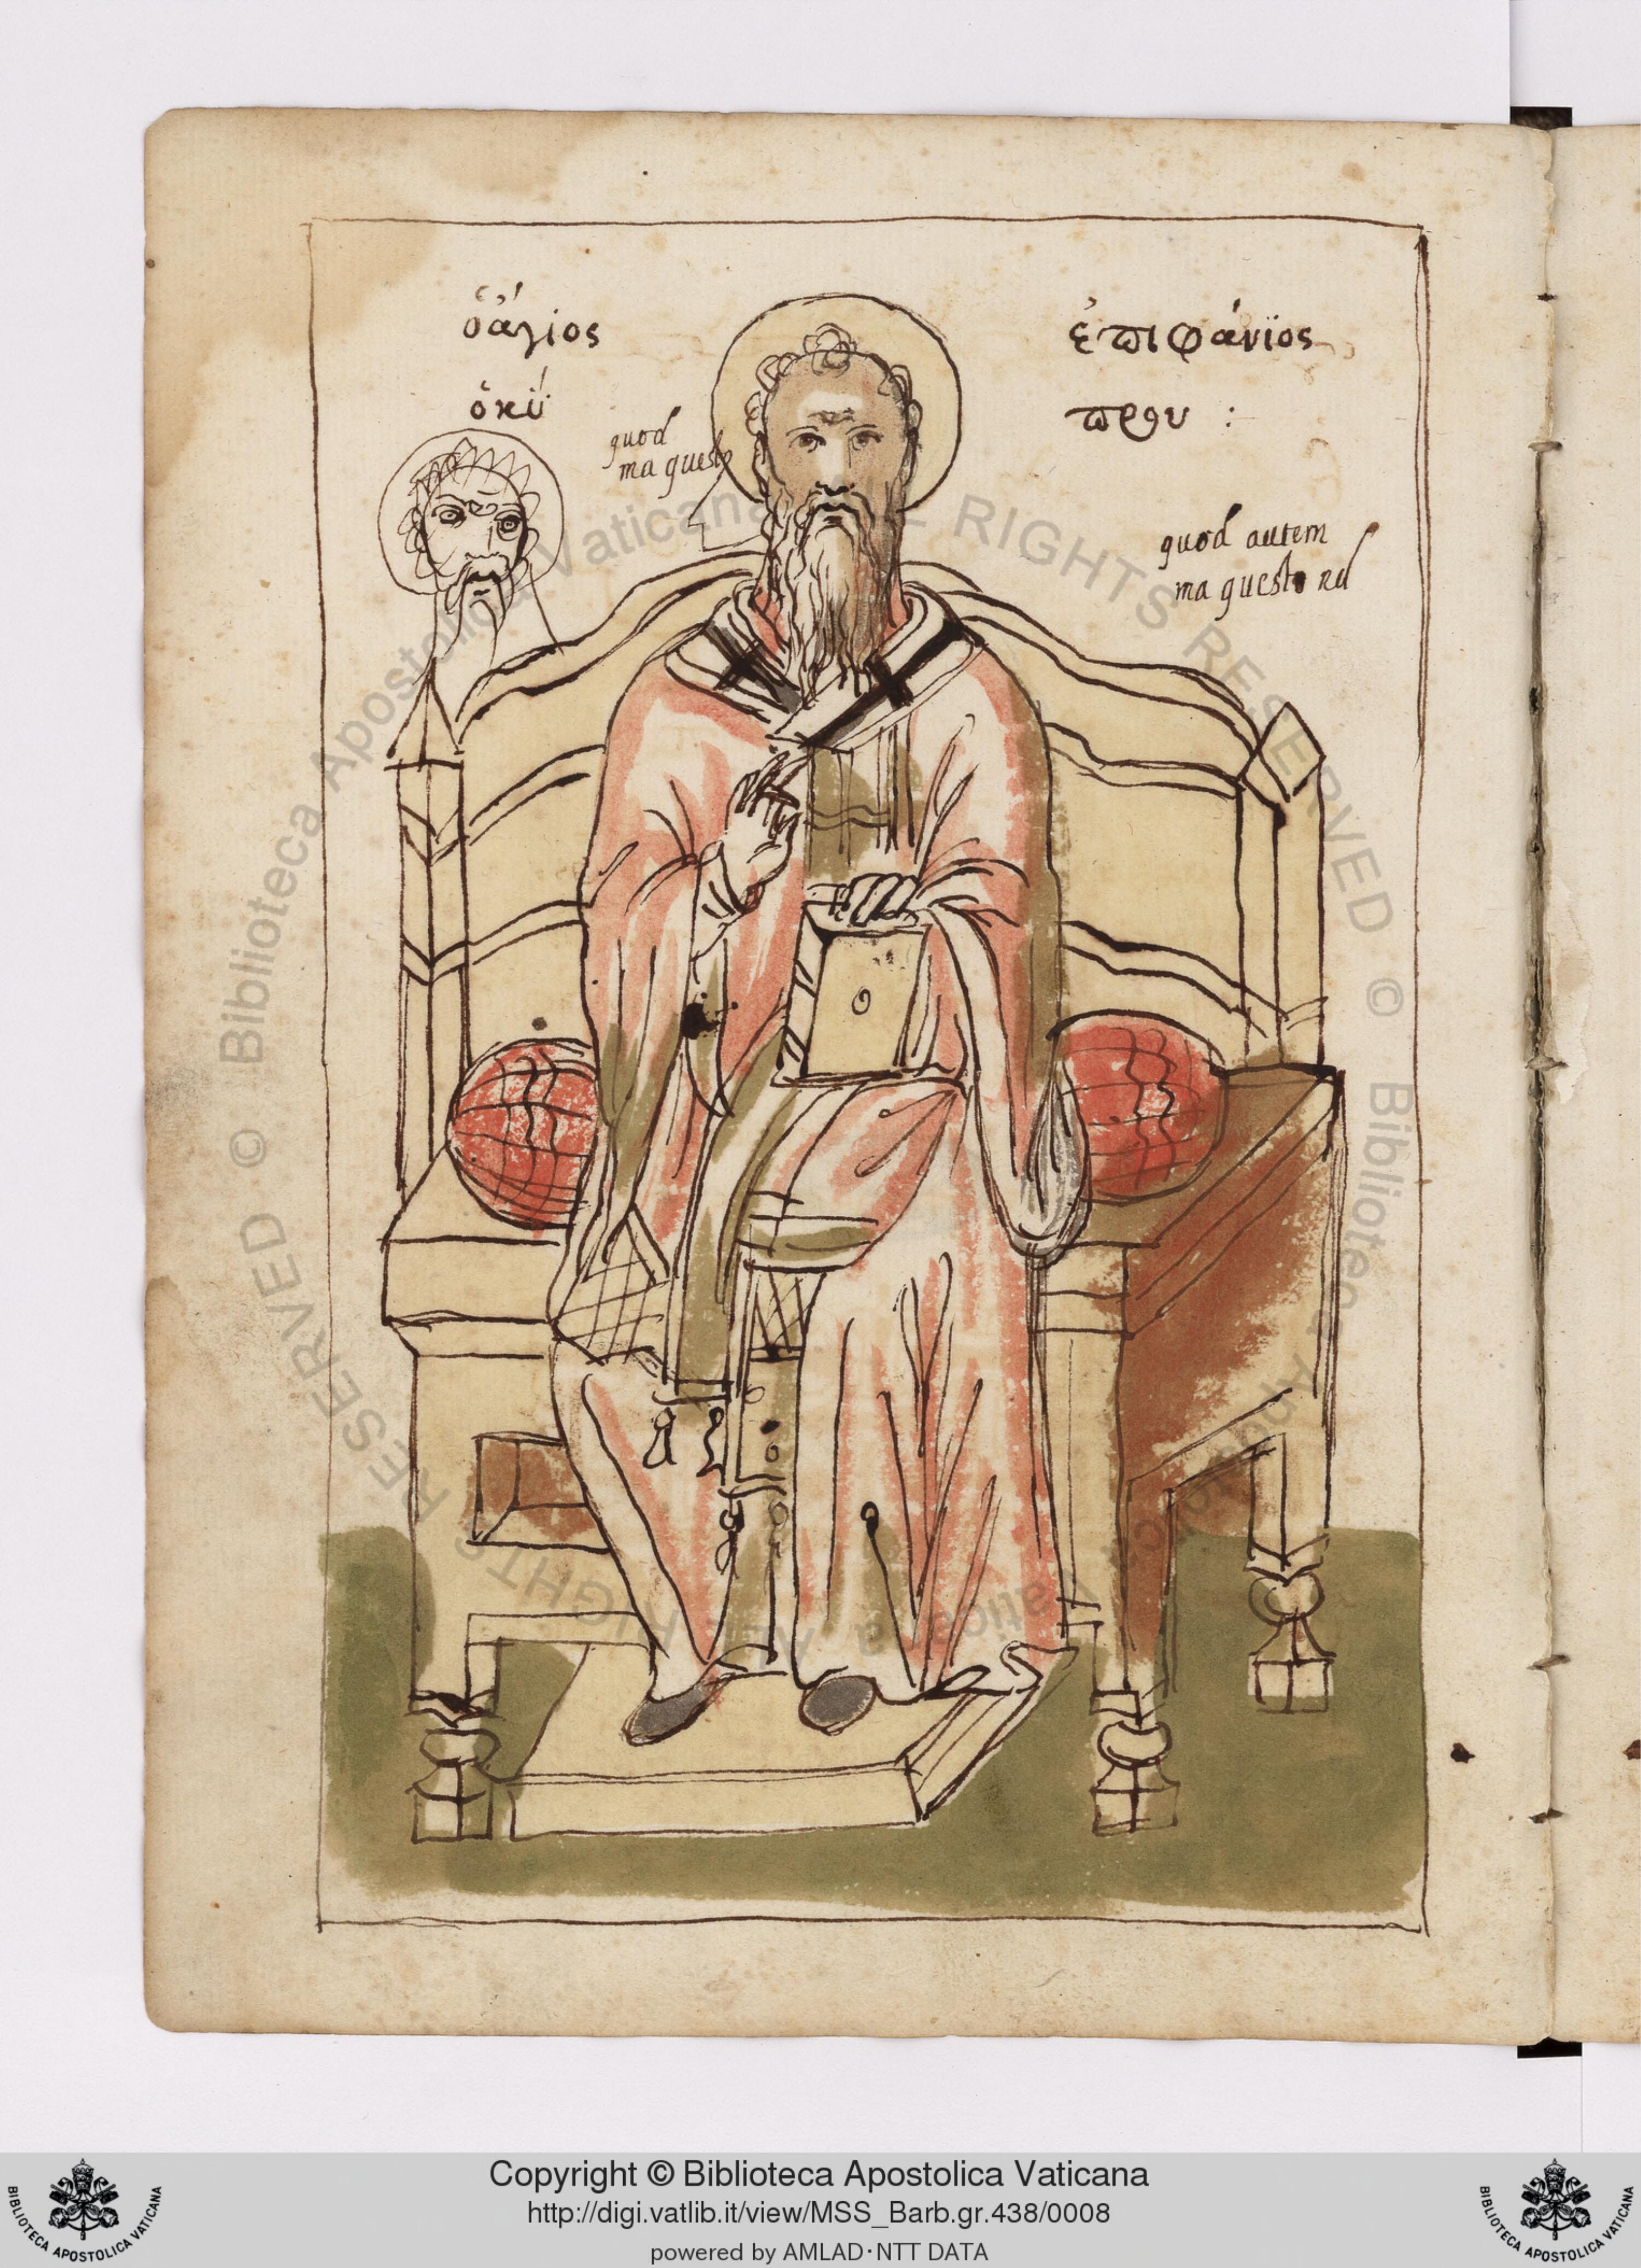 ὁ ἅγιος
ἐπιφάνϊος
ὁ κύ
πρου :
quod
ma questo
quod autem
ma questo nd
© Biblioteca Apostolica Vaticana ALL RIGHTS RESERVED © Biblioteca Apostolica Vaticana ALL RIGHTS RESERVED
Copyright © Biblioteca Apostolica Vaticana
http://digi.vatlib.it/view/MSS_Barb.gr.438/0008
powered by AMLAD·NTT DATA
BIBLIOTECA APOSTOLICA VATICANA
BIBLIOTECA APOSTOLICA VATICANA